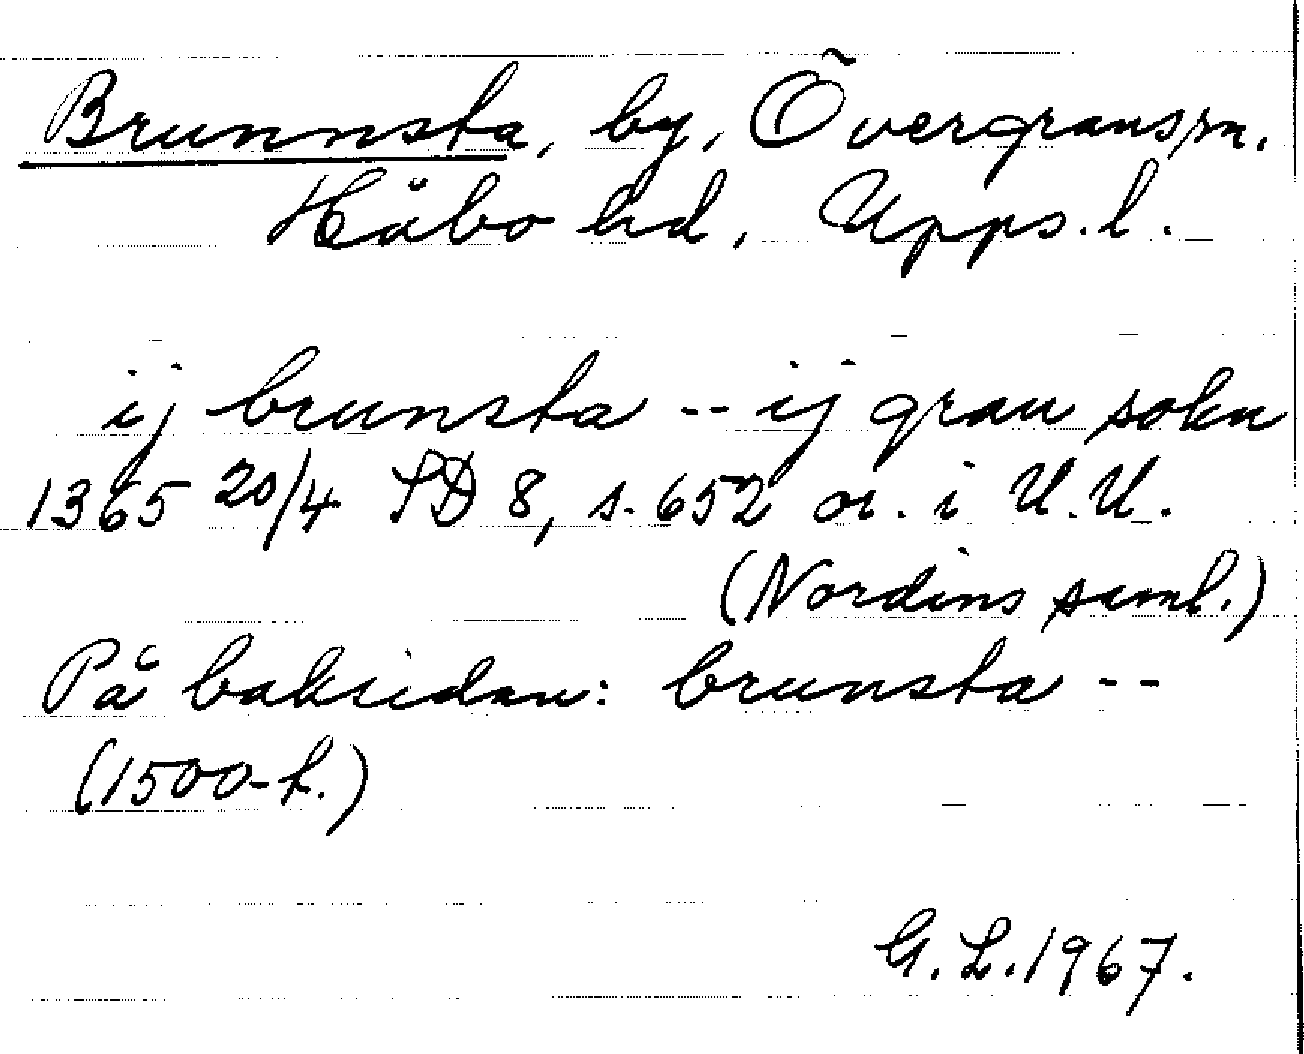 Brunnsta, by, Övergrans sn.
Håbo hd, Upps. l.
ij brunsta -- ij gran sokn
1365 20/4 SD 8, s. 652 or. i U.U.
(Nordins saml.)
På baksidan: brunsta --
(1500-t.)
G. L. 1967.